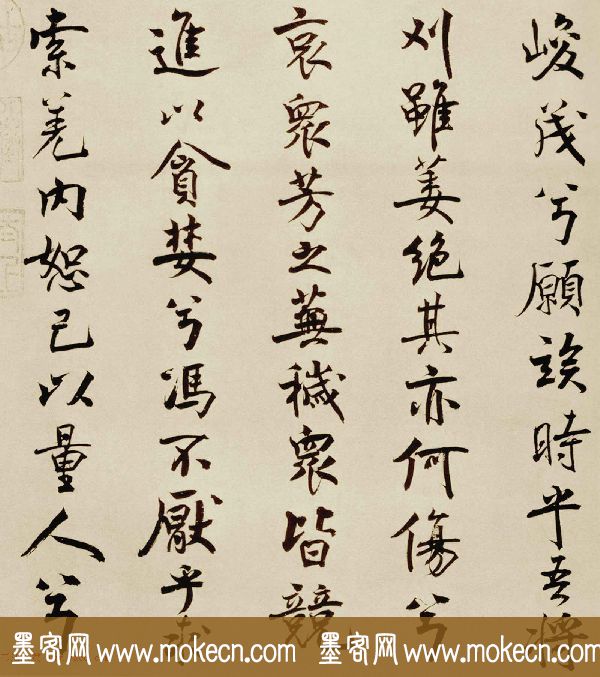 峻茂兮願竢時乎吾將
刈雖萎絕其亦何傷兮
哀眾芳之蕪穢眾皆競
進以貪婪兮馮不厭乎求
索羌內恕己以量人兮
墨客网 www.mokecn.com 墨客网 www.mokecn.com